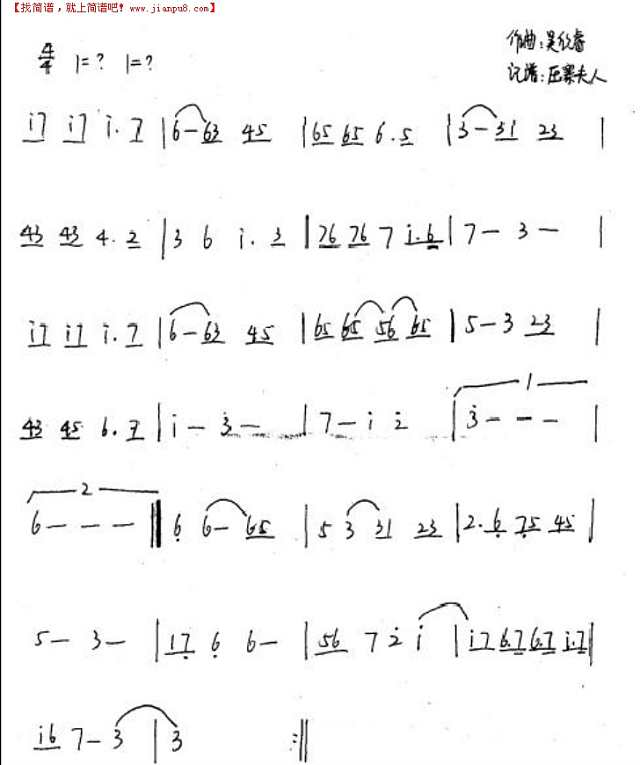 【找简谱，就上简谱吧！www.jianpu8.com】
作曲：吴欣睿
4/4 1=? 1=?
记谱：压寨夫人
i7 i7 i. 7 | 6 - 63 45 | 65 65 6. 5 | 3 - 31 23 |
43 43 4. 2 | 3 6 i. 3 | 76 76 7 i.6 | 7 - 3 - |
i7 i7 i. 7 | 6 - 63 45 | 65 65 56 65 | 5 - 3 23 |
1
43 45 6. 7 | i - 3 - | 7 - i 2 | 3 - - - |
2
6 - - - || 6 6 - 65 | 5 3 31 23 | 2. 6 75 45 |
5 - 3 - | 17 6 6 - | 56 7 2 i | i7 6.7 6.7 i.7 |
i6 7 - 3 | 3 :||